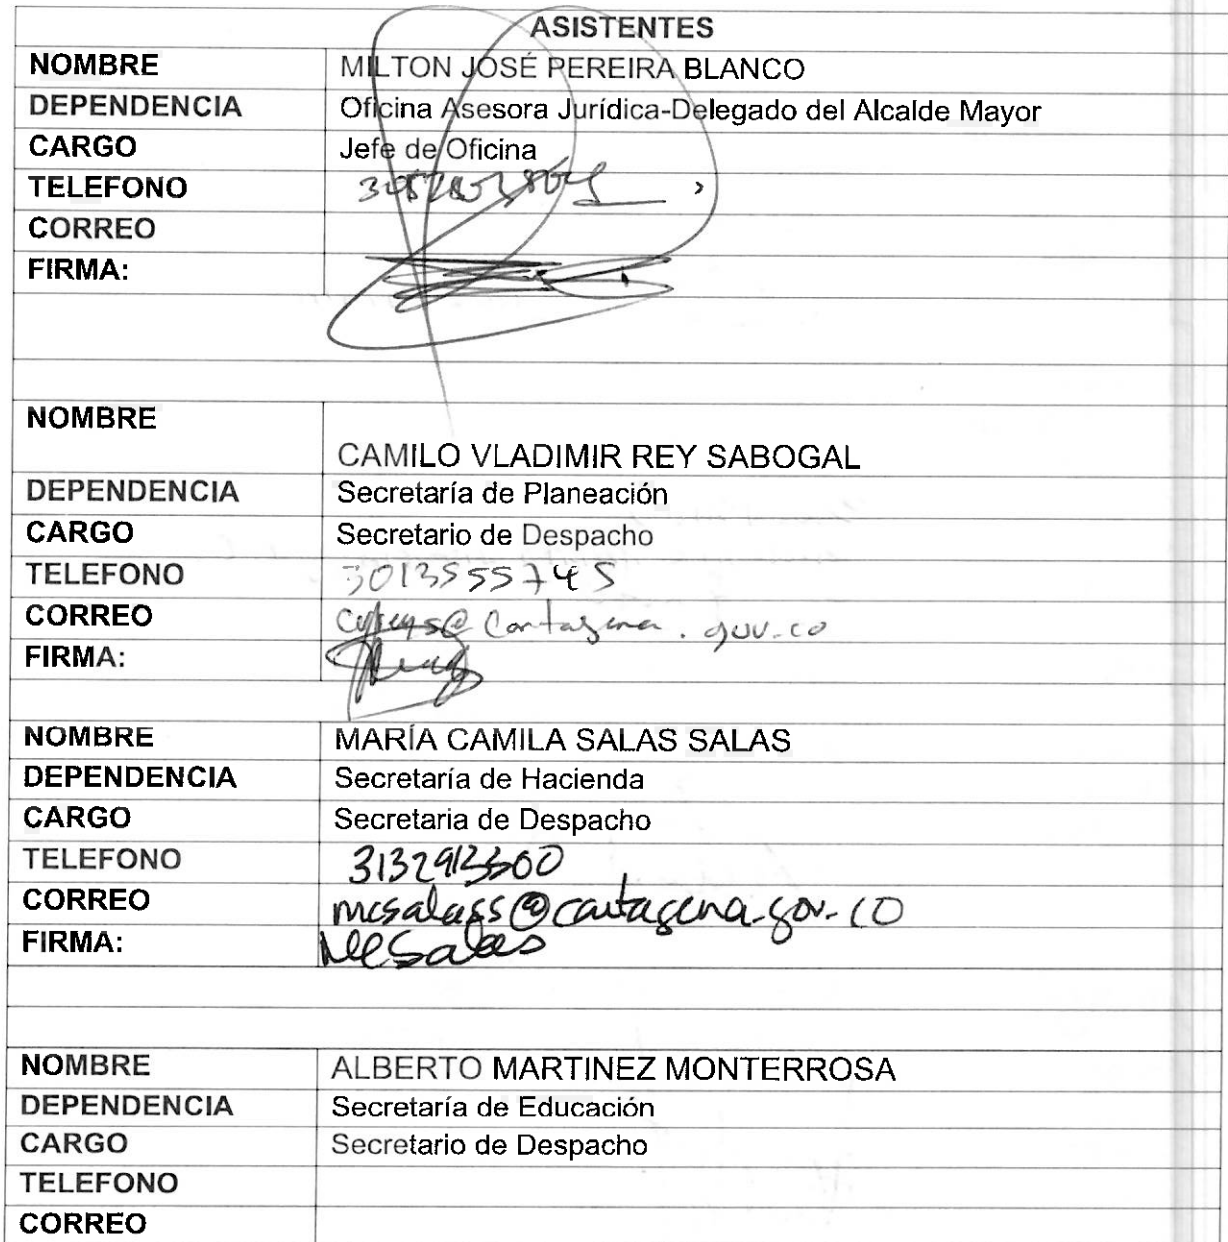 ASISTENTES
NOMBRE MILTON JOSÉ PEREIRA BLANCO
DEPENDENCIA Oficina Asesora Jurídica-Delegado del Alcalde Mayor
CARGO Jefe de Oficina
TELEFONO
CORREO
FIRMA:
NOMBRE
CAMILO VLADIMIR REY SABOGAL
DEPENDENCIA Secretaría de Planeación
CARGO Secretario de Despacho
TELEFONO 3013555745
CORREO
FIRMA:
NOMBRE MARÍA CAMILA SALAS SALAS
DEPENDENCIA Secretaría de Hacienda
CARGO Secretaria de Despacho
TELEFONO 3132913300
CORREO mcsalass@cartagena.gov.co
FIRMA: MCSalas
NOMBRE ALBERTO MARTINEZ MONTERROSA
DEPENDENCIA Secretaría de Educación
CARGO Secretario de Despacho
TELEFONO
CORREO